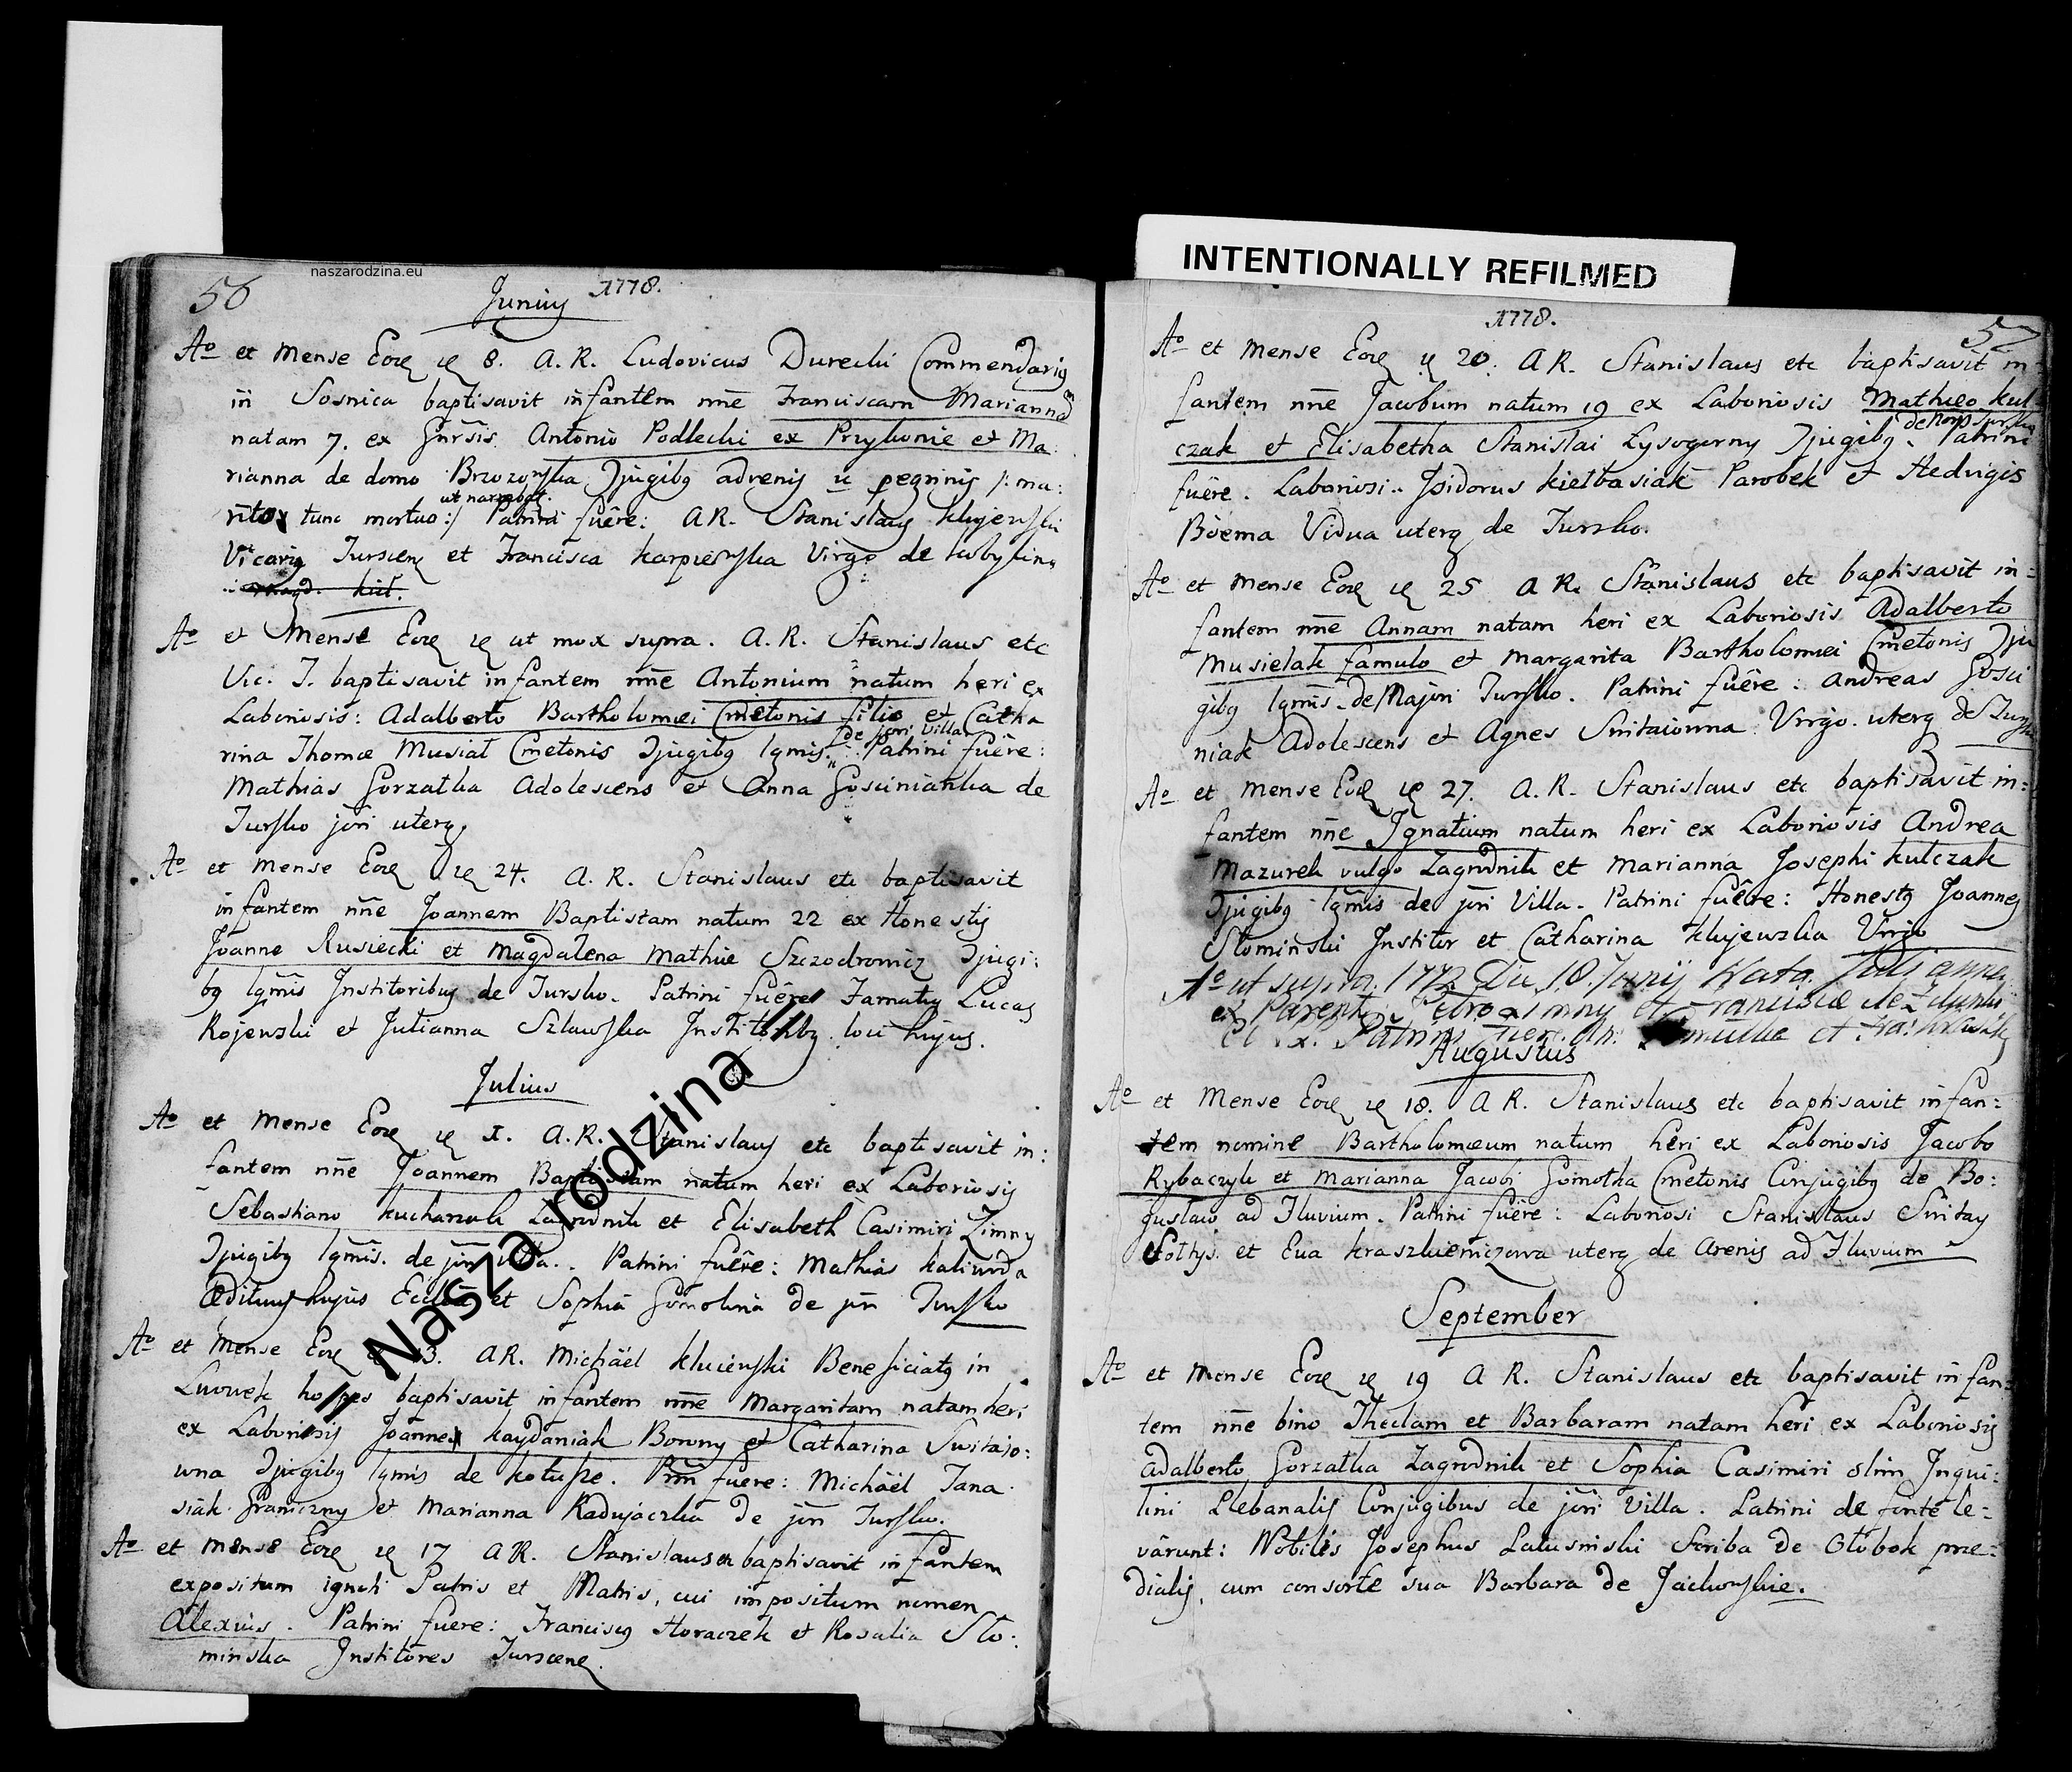 naszarodzina.eu
56
Junius 1778.
Ao et Mense Eod 8. A. R. Ludovicus Durecki Commendarig
in Sosnica baptisavit infantem nne Franciscam Mariannam
natam 7. ex Gnrsis Antonio Podlecki ex Przybonie et Ma:
rianna de domo Brzozowska Djugibg advenis pegrinis /: ma:
ut narrabat.
rito tunc mortuo :/ Patrini fuêre: AR. Stanislaus Klujewski
Vicarig Turscen et Francisca Karpiewska Virgo de Kobylin
Ao et Mense Eod ut mox supra. A. R. Stanislaus etc
Vic. T. baptisavit infantem nne Antonium natum heri ex
Laboriosis: Adalberto Bartholomei Cmetonis filio et Catha
de jori Villa
rina Thomæ Musiał Cmetonis Djugibg lgmis. Patrini fuêre:
Mathias Gorzatka Adolescens et Anna Gosciniahka de
Tursko jori uterq
Ao et Mense Eod 24. A. R. Stanislaus etc baptisavit
infantem nne Joannem Baptistam natum 22 ex Honestis
Joanne Rusiecki et Magdalena Mathiæ Szczodrowicz Djugi:
bg lgmis Institoribus de Tursko. Patrini fuêre Famatg Lucas
Kojewski et Julianna Szlawska Institoribg loci hujus.
Julius
Ao et Mense Eod 1. A. R. Stanislaus etc baptisavit in:
fantem nne Joannem Baptistam natum heri ex Laboriosis
Sebastiano Kucharzak Zagrodnik et Elisabeth Casimiri Zimny
Djugibg lgmis. de jori Villa. Patrini fuêre: Mathias Kaliwoda
Ædituus hujus Ecclæ et Sophia Gomolina de jori Tursko
Ao et Mense Eod 13. AR. Michäel Kluciewski Beneficiatg in
Lwowek hospes baptisavit infantem nne Margaritam natam heri
ex Laboriosis Joanne Kaydaniak Borowy et Catharina Switajo:
wna Djugibg lgmis de Kotuske. Prni fuere: Michäel Jana:
siak Graniczny et Marianna Radujaczka de jori Tursko.
Ao et Mense Eod 17 AR. Stanislaus etc baptisavit infantem
expositum ignoti Patris et Matris, cui impositum nomen
Alexius. Patrini fuere: Franciscg Horaczek et Rosalia Sło:
minska Institores Turscens.
Nasza rodzina
INTENTIONALLY REFILMED
1778.
57
Ao et Mense Eod 20. AR. Stanislaus etc baptisavit in=
fantem nne Jacobum natum 19 ex Laboriosis Mathæo Kul
czak et Elisabetha Stanislai Łysogorny Djugibg. Patrini
fuêre. Laboriosi. Isidorus Kiełbasiak Parobek et Hedvigis
Böema Vidua uterq de Tursko.
Ao et Mense Eod 25 A R. Stanislaus etc baptisavit in=
fantem nne Annam natam heri ex Laboriosis Adalberto
Musielak famulo et Margarita Bartholomæi Cmetonis Dju
gibg lgmis. de Majori Tursko. Patrini fuêre: Andreas Gosci
niak Adolescens et Agnes Switaiowna Virgo. uterq de Tursko
Ao et Mense Eod 27. A. R. Stanislaus etc baptisavit in=
fantem nne Ignatium natum heri ex Laboriosis Andrea
Mazurek vulgo Zagrodnik et Marianna Josephi Kulczak
Djugibg lgmis de jori Villa. Patrini fuêre: Honestg Joannes
Słominski Institor et Catharina Klujewska Virgo
Ao ut supra. Die 10. Junij Nata Julianna
ex Parent. Petro Zimny et Francisca de
Augustus
Ao et Mense Eod 18. A R. Stanislaus etc baptisavit infan=
tem nomine Bartholomæum natum heri ex Laboriosis Jacobo
Rybaczyk et Marianna Jacobi Gomotka Cmetonis Conjugibg de Bo:
guslaw ad Fluvium. Patrini fuêre: Laboriosi Stanislaus Switay
Sołtys. et Eva Kraszkiewiczowa uterq de Arenis ad Fluvium
September
Ao et Mense Eod 19 A R. Stanislaus etc baptisavit infan=
tem nne bino Theclam et Barbaram natam heri ex Laboriosis
Adalberto Gorzatka Zagrodnik et Sophia Casimiri olim Inqui:
lini Plebanalis Conjugibus de jori Villa. Patrini de fonte le=
vârunt: Nobilis Josephus Latusinski Scriba de Głobok præ=
dialis, cum consorte sua Barbara de Jackowskie.